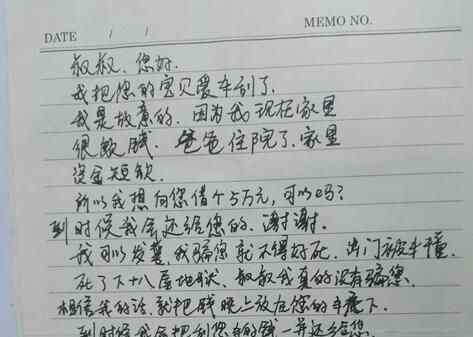 DATE / / MEMO NO.
叔叔、您好.
我把您的宝贝爱车刮了.
我是故意的. 因为我现在家里
很缺钱. 爸爸住院了、家里
资金短缺.
所以我想向您借个5万元, 可以吗?
到时候我会还给您的. 谢谢.
我可以发誓, 我骗您就不得好死. 出门被车撞.
死了下十八层地狱、叔叔我真的没有骗您、
相信我的话、就把钱晚上放在您的车底下.
到时候我会把刮车的钱一并还给您.